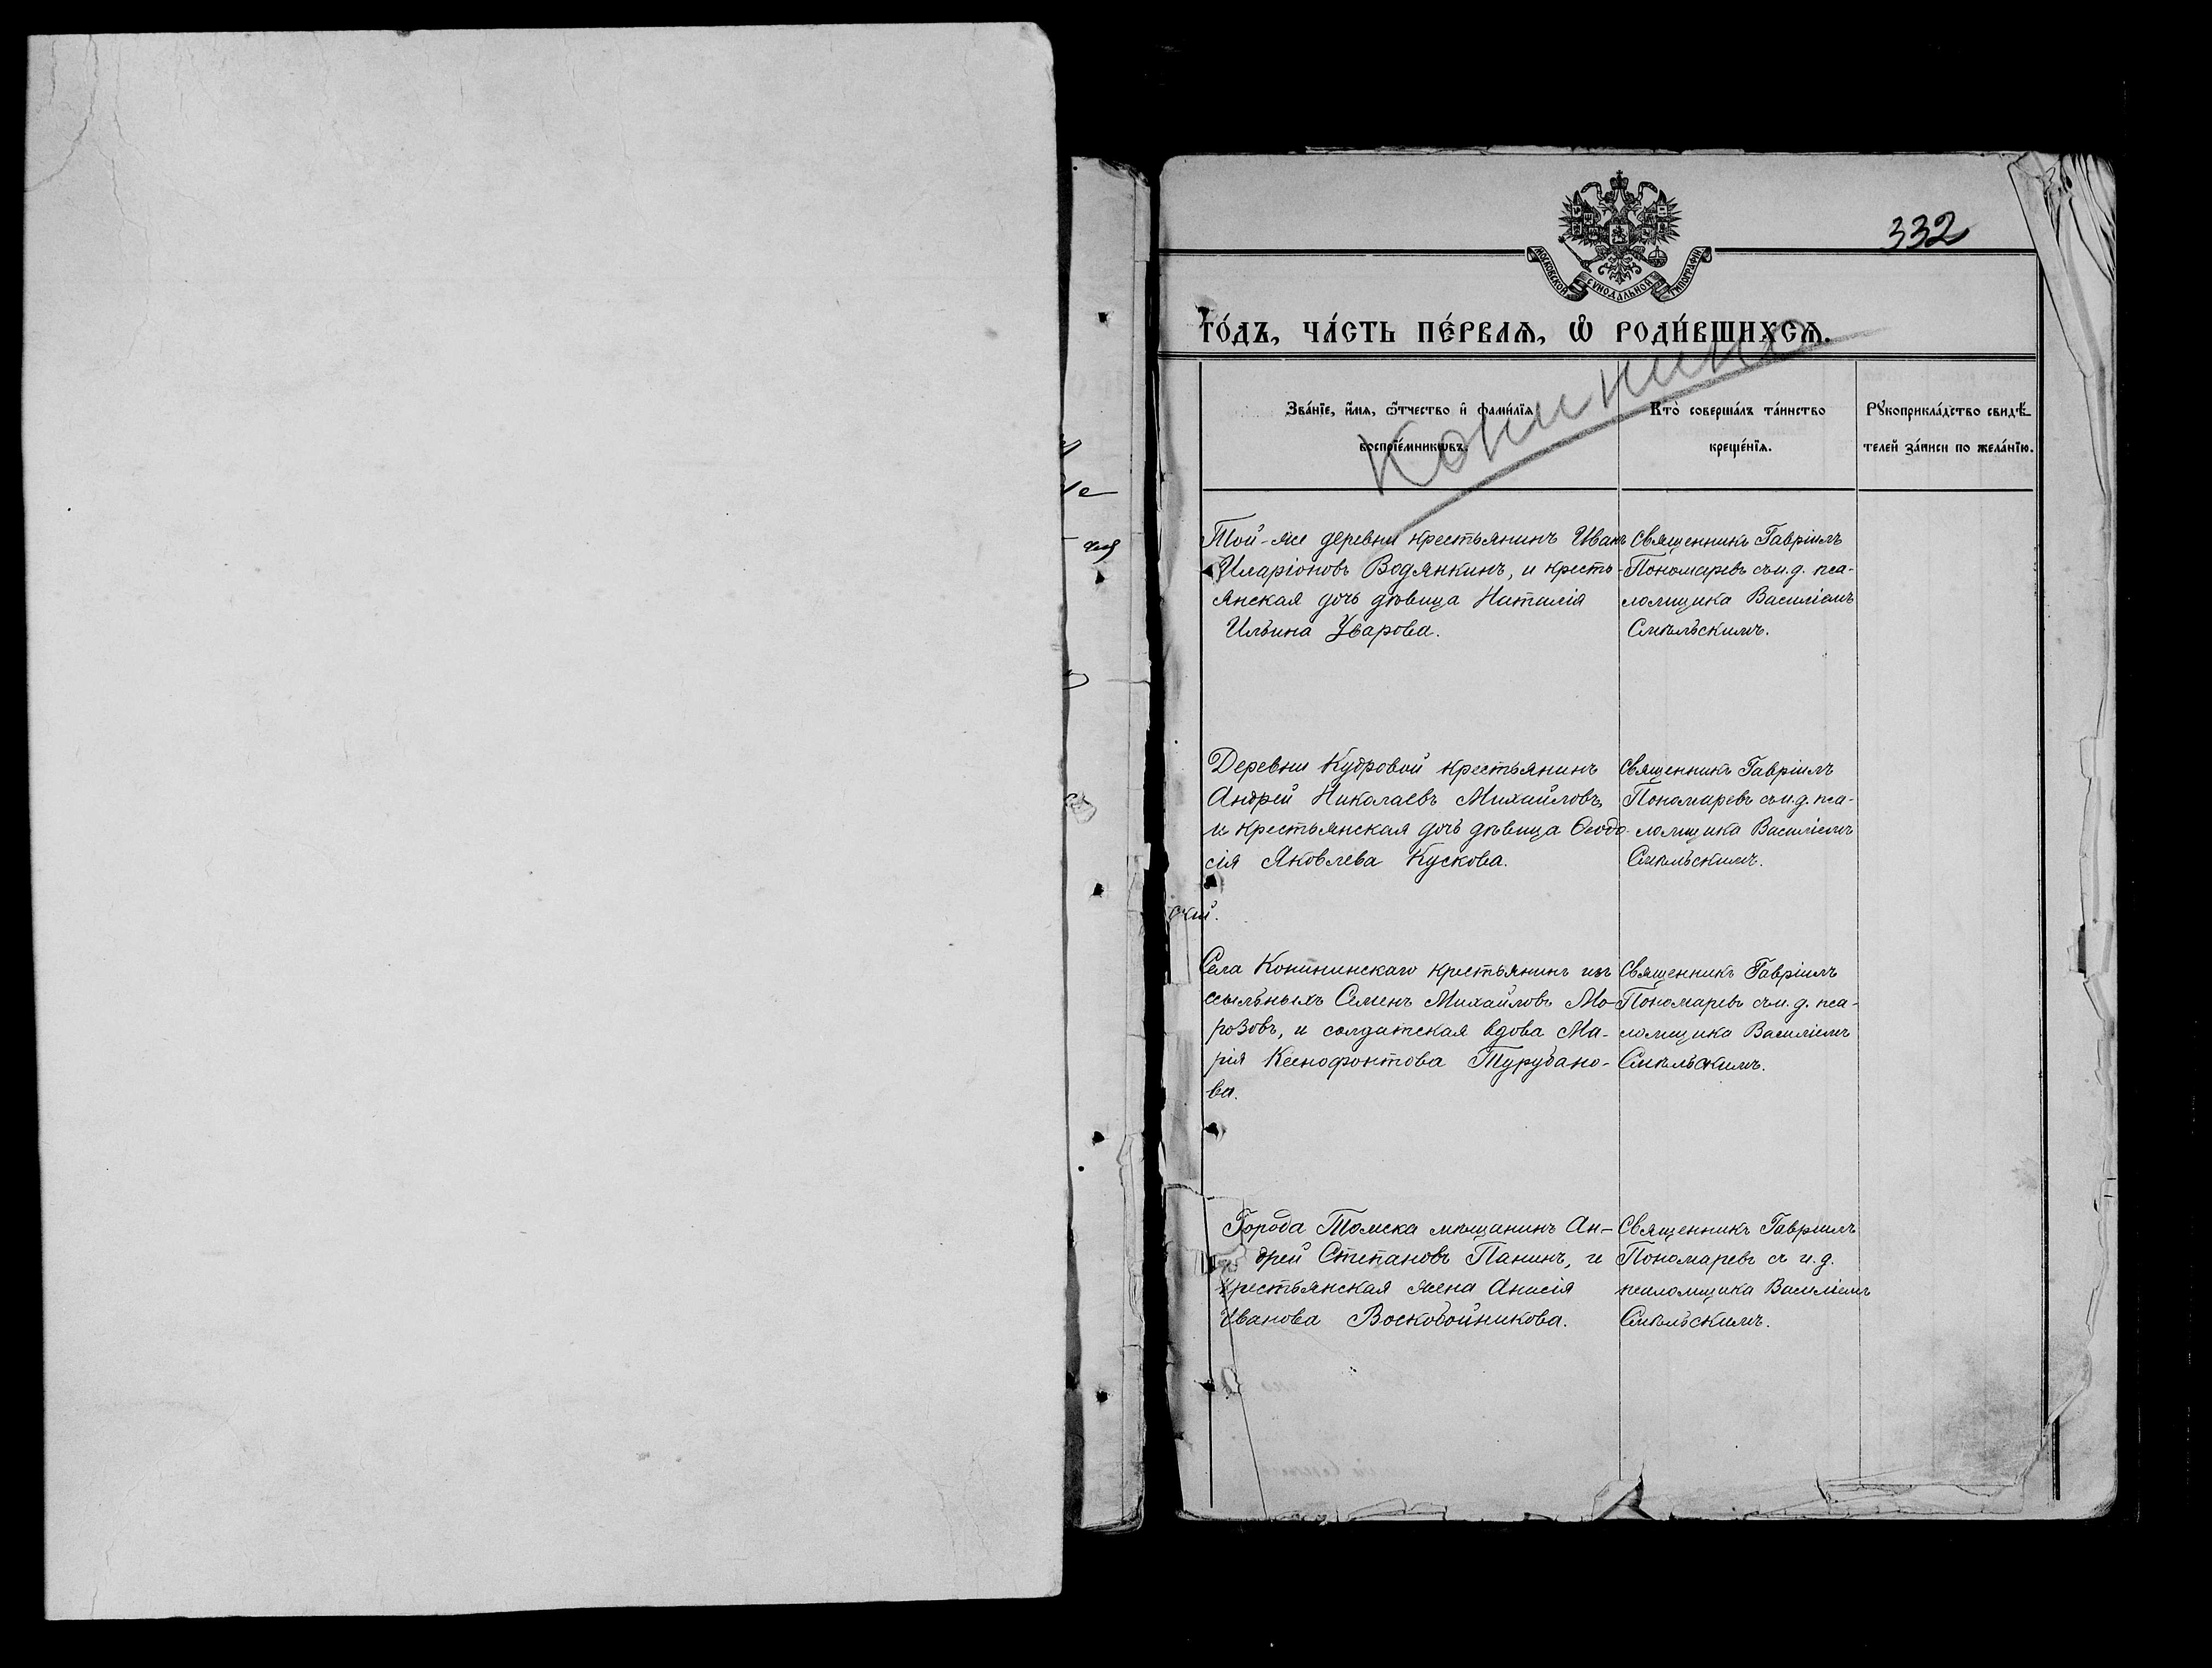 332
МОСКОВСКОЙ СУНОДАЛЬНОЙ ТИПОГРАФІИ
го́дъ, ча́сть пе́рваѧ, ѡ҆ роди́вшихсѧ.
Конинино
Зва́нїе, и҆́мѧ, ѻ҆́тчество и҆ фами́лїѧ
воспрїе́мникѡвъ.
Кто̀ соверша́лъ та́инство
креще́нїѧ.
Рꙋкоприкла́дство свидѣ́-
телей за́писи по жела́нїю.
Той-же деревни крестьянинъ Иванъ
Иларіоновъ Водянкинъ, и кресть-
янская дочь дѣвица Наталія
Ильина Уварова.
Священникъ Гавріилъ
Пономаревъ съ и. д. пса-
ломщика Василіемъ
Смѣльскимъ.
Деревни Кудровой крестьянинъ
Андрей Николаевъ Михайловъ,
и крестьянская дочь дѣвица Ѳеодо-
сія Яковлева Кускова.
Священникъ Гавріилъ
Пономаревъ съ и. д. пса-
ломщика Василіемъ
Смѣльскимъ.
ской.
Села Конининскаго крестьянинъ изъ
ссыльныхъ Семенъ Михайловъ Мо-
розовъ, и солдатская вдова Ма-
рія Ксенофонтова Турубано-
ва.
Священникъ Гавріилъ
Пономаревъ съ и. д. пса-
ломщика Василіемъ
Смѣльскимъ.
Города Томска мѣщанинъ Ан-
дрей Степановъ Панинъ, и
крестьянская жена Анисія
Иванова Воскобойникова.
Священникъ Гавріилъ
Пономаревъ съ и. д.
псаломщика Василіемъ
Смѣльскимъ.